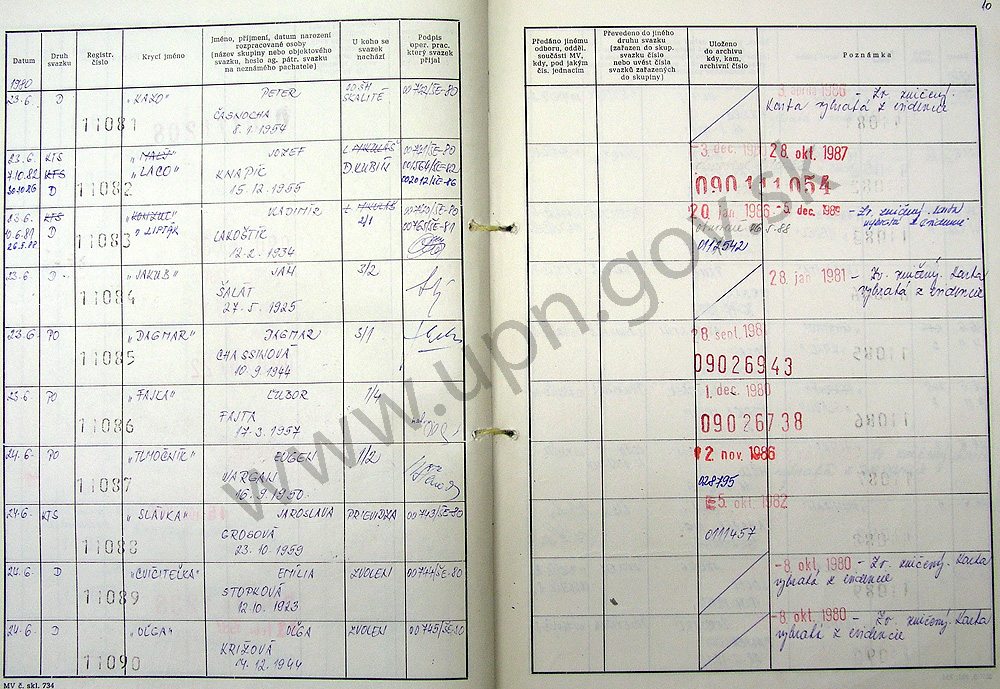 10
Datum
Druh svazku
Registr. číslo
Krycí jméno
Jméno, příjmení, datum narození
rozpracované osoby
(název skupiny nebo objektového
svazku, heslo ag. pátr. svazku
na neznámého pachatele)
U koho se
svazek
nachází
Podpis
oper. prac.
který svazek
přijal
Předáno jinému
odboru, odděl.
součásti MV,
kdy, pod jakým
čís. jednacím
Převedeno do jiného
druhu svazku
(zařazen do skup.
svazku číslo
nebo uvést čísla
svazků zařazených
do skupiny)
Uloženo
do archivu
kdy, kam,
archivní číslo
Poznámka
1980
23.6. D "KAZO" PETER OO ŠH 00742/ŠE-80
SKALITÉ
11081 ČASNOCHA
8.1.1954
Zv. zničený.
Karta vybratá z evidencie
23.6. KTS JOZEF
7.10.82 KTS "LACO" KNAPÍC D.KUBÍN
30.10.86 D 11082 15.12.1955 002012/ŠE-86
-3. dec. 28. okt. 1987
090111054
23.6. KTS VLADIMÍR 2/1
D "LIPTÁK"
11083 12.2.1934
20. jan 1986 -5. dec. 1989 - Zv. zničený. Karta
vybratá z evidencie
0112542
23.6. D "JAKUB" JÁN 3/2
11084 ŠALÁT
27.5.1925
28. jan 1981 - Zv. zničený. Karta
vybratá z evidencie
23.6. PO "DAGMAR" DAGMAR 3/1
11085 CHASSINOVÁ
10.9.1944
28. sept. 198
09026943
23.6 PO ĽUBOR 1/4
11086 FAJTA
17.3.1957
1. dec. 1980
09026738
24.6. PO "TLMOČNÍK" EUGEN 1/2
11087 VARGAN
16.9.1950.
2. nov. 1986
028795
24.6. KTS "SLÁVKA" JAROSLAVA PRIEVIDZA 00743/ŠE-80
11088 GROSOVÁ
23.10.1959
5. okt. 1982
0111457
24.6. D "CVIČITEĽKA" EMÍLIA ZVOLEN 00744/ŠE-80
11089 STOPKOVÁ
12.10.1923
-8. okt. 1980 - Zv. zničený. Karta
vybratá z evidencie
24.6. D "OĽGA" OĽGA ZVOLEN 00745/ŠE-80
11090 KRÍŽOVÁ
14.12.1944
-8. okt. 1980 - Zv. zničený. Karta
vybratá z evidencie
MV č. skl. 734
www.upn.gov.sk